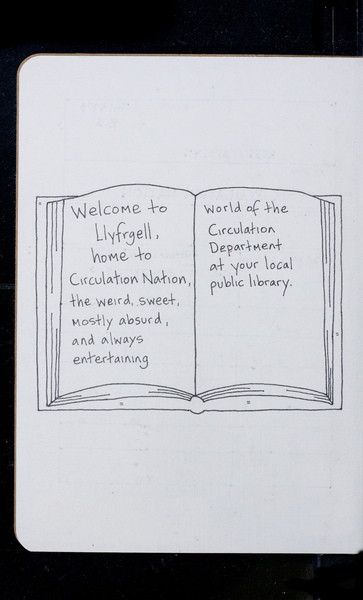 Welcome to
Llyfrgell,
home to
Circulation Nation,
the weird, sweet,
mostly absurd,
and always
entertaining
world of the
Circulation
Department
at your local
public library.